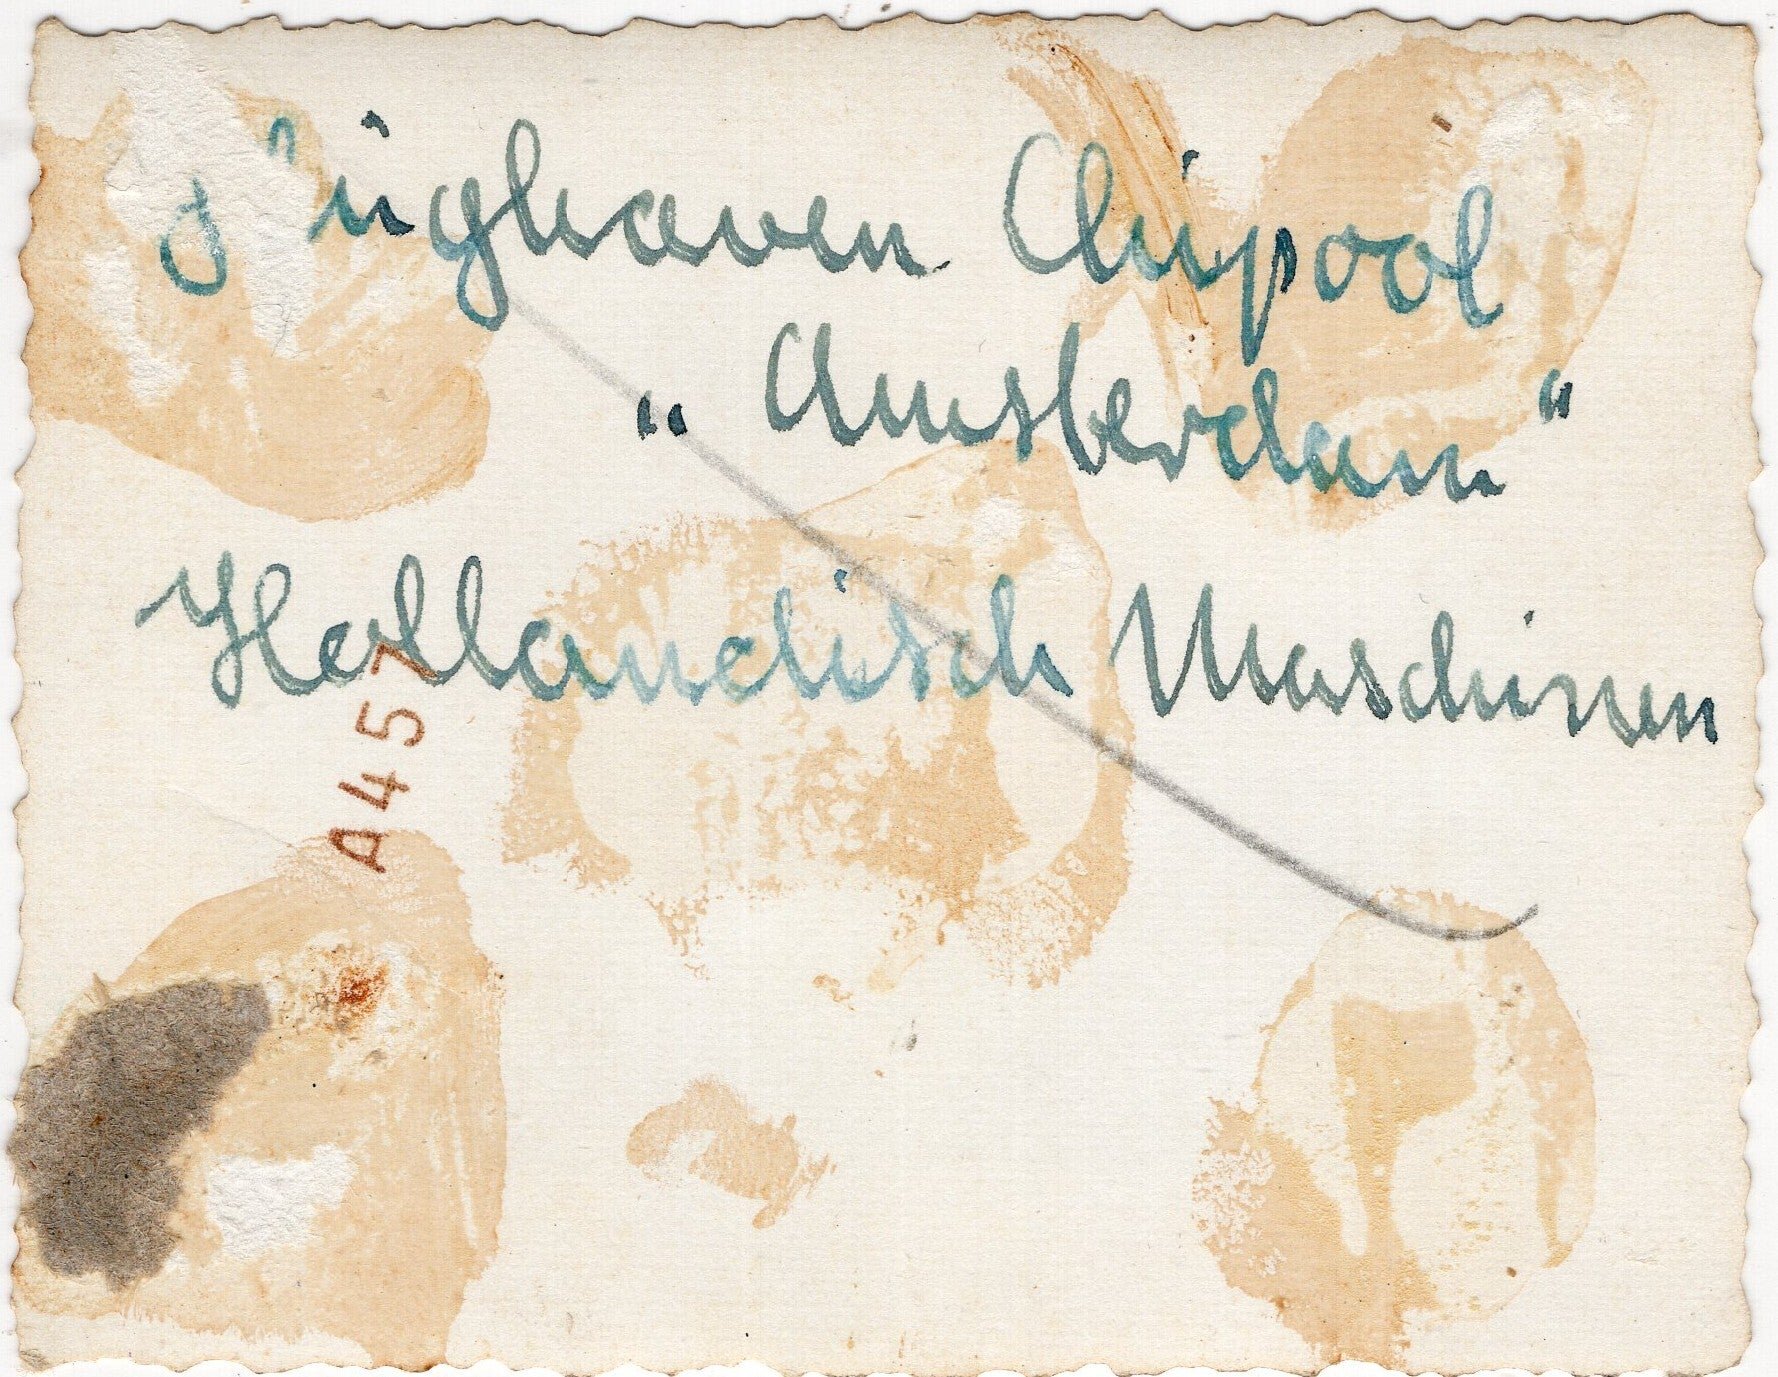 Flughaven Chipool
„Amsterdam“
Hollandisch Maschinen
A457